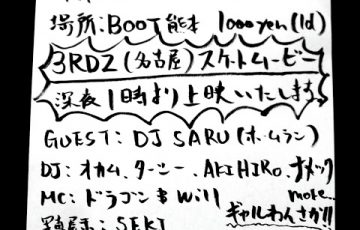 場所:BOOT 能本 1000yen(1d)
3RDZ(名古屋)スケートムービー
深夜1時より上映いたします。
GUEST: DJ SARU(ホームラン)
DJ: オカム、ターシー、AKIHIRO、ナメック
MC: ドラゴン $ Will more..
ギャルわんさか!!
SEKI